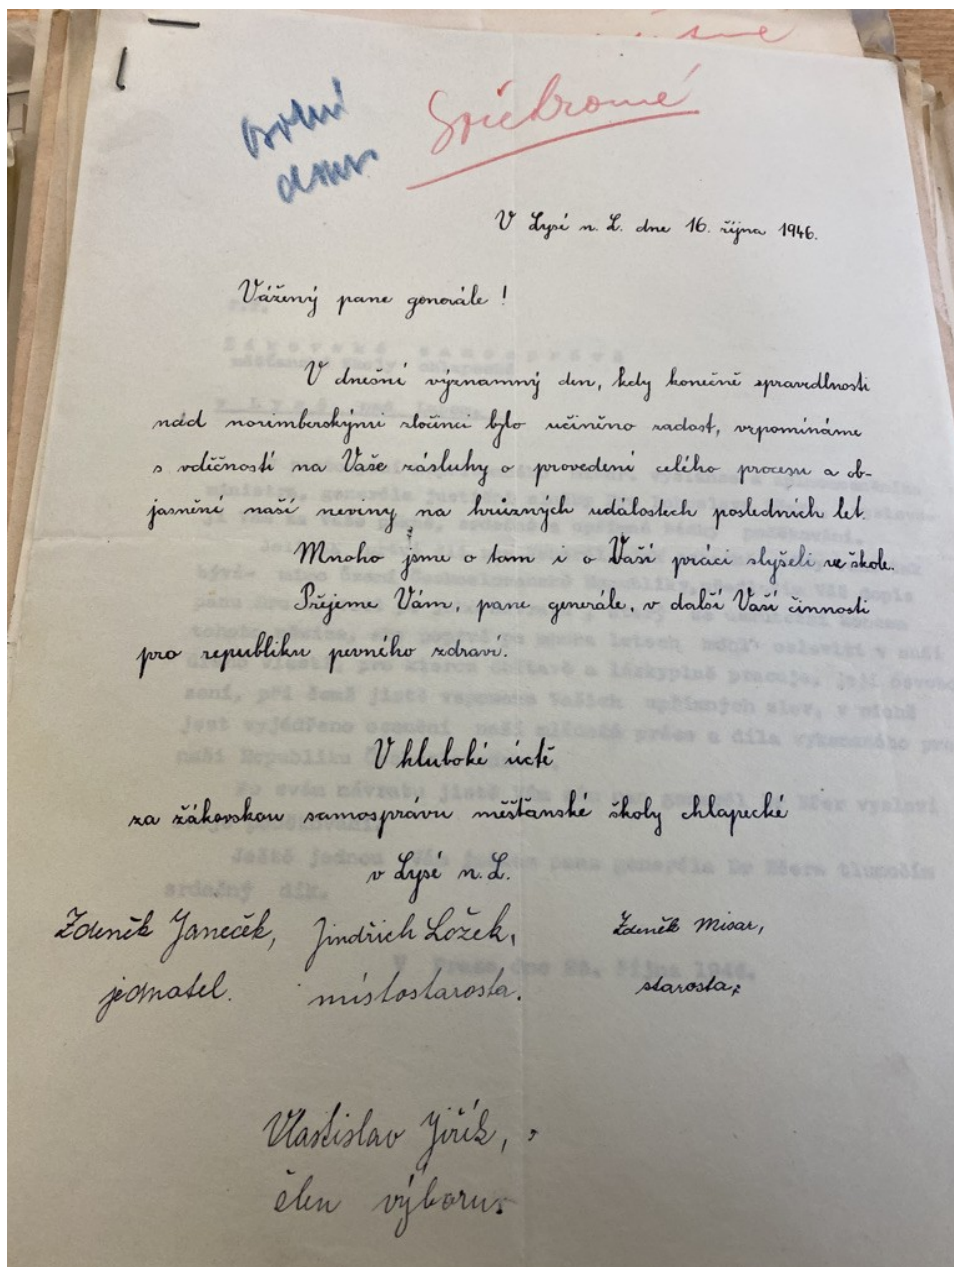 Soukromé
V Lysé n. L. dne 16. října 1946.
Vážený pane generále !
V dnešní významný den, kdy konečně spravedlnosti
nad norimberskými zločinci bylo učiněno radost, vzpomínáme
s vděčností na Vaše zásluhy o provedení celého procesu a ob-
jasnění naší neviny na hrůzných událostech posledních let.
Mnoho jsme o tom i o Vaší práci slyšeli ve škole.
Přejeme Vám, pane generále, v další Vaší činnosti
pro republiku pevného zdraví.
V hluboké úctě
za žákovskou samosprávu měšťanské školy chlapecké
v Lysé n. L.
Zdeněk Janeček, Jindřich Ložek, Zdeněk Misar,
jednatel. místostarosta. starosta,
Vlastislav Jiřík,
člen výboru.